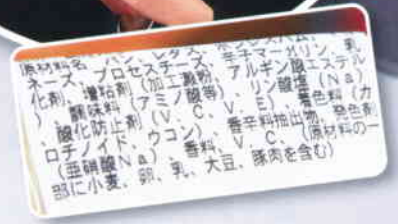 原材料名 パン、レタス、ボンレスハム、
ネーズ、プロセスチーズ、辛子マーガリン、乳
化剤、増粘剤(加工澱粉、アルギン酸エステル
)、調味料(アミノ酸等)、リン酸塩(Na)
、酸化防止剤(V.C、V.E)、着色料(カ
ロチノイド、ウコン)、香辛料抽出物、発色剤
(亜硝酸Na)、香料、V.C、(原材料の一
部に小麦、卵、乳、大豆、豚肉を含む)